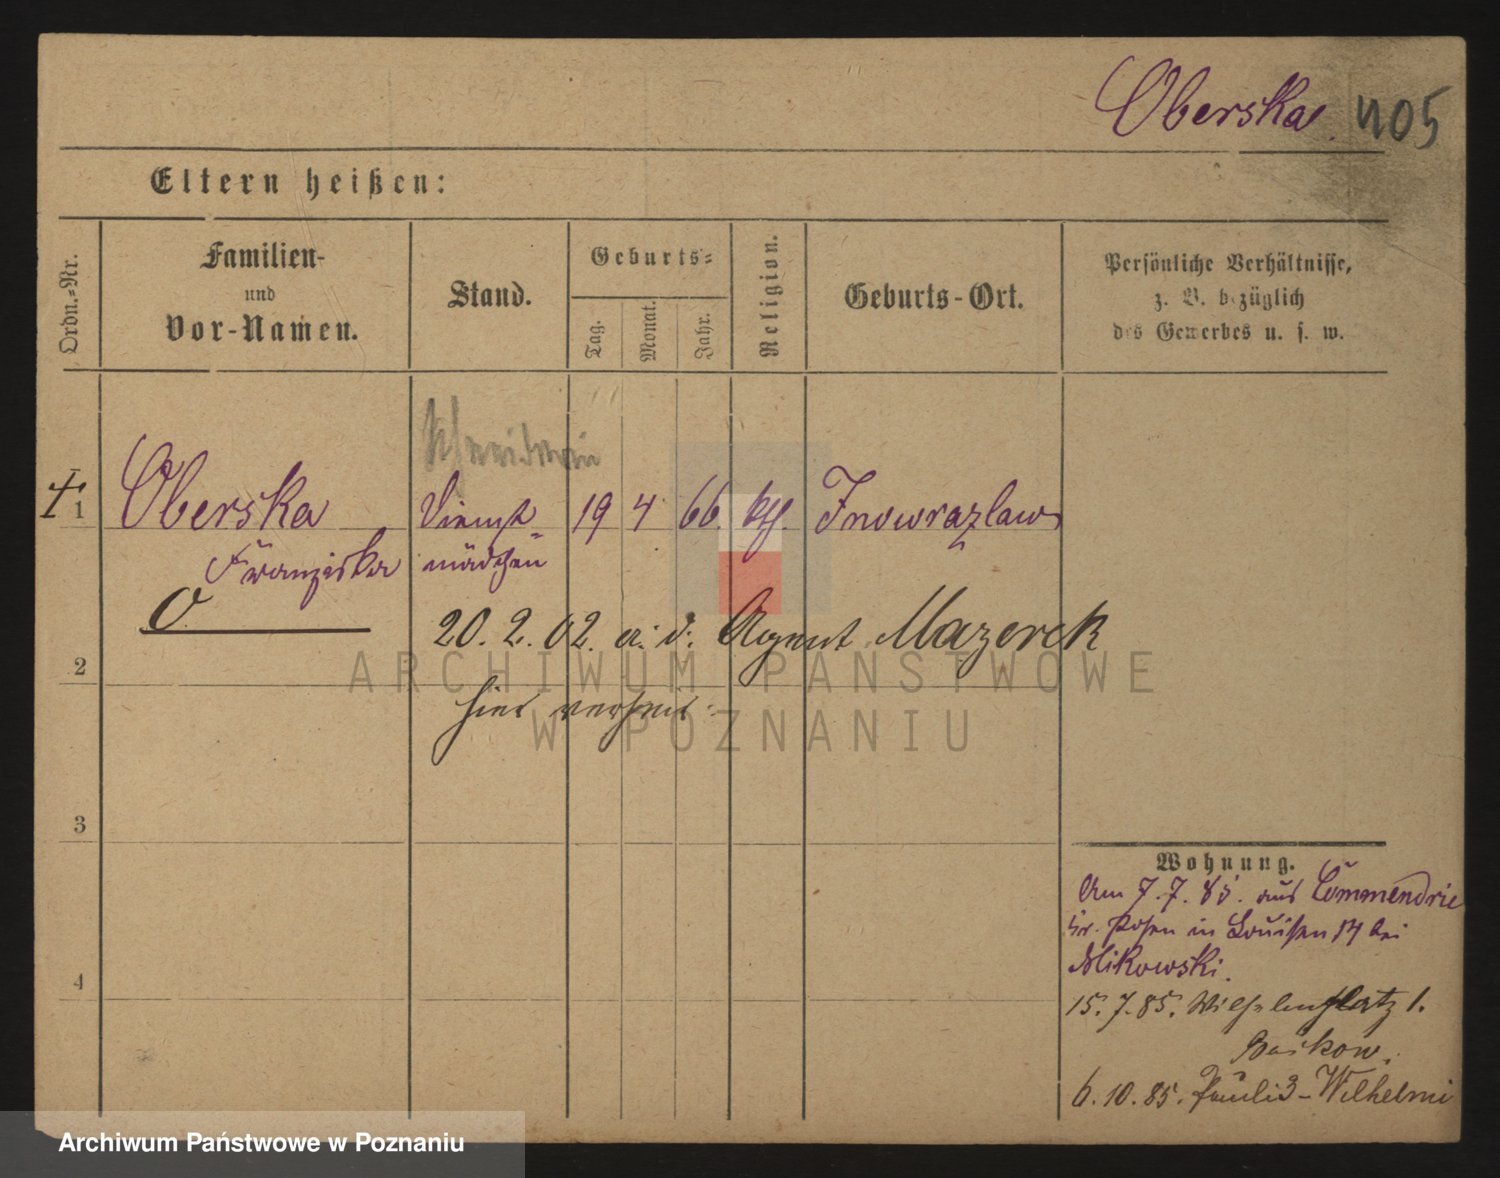 Oberska. 405
Eltern heißen:
Ordn.-Nr.
Familien-
und
Vor-Namen.
Stand.
Geburts-
Tag.
Monat.
Jahr.
Religion.
Geburts-Ort.
Persönliche Verhältnisse,
z. B. bezüglich
des Gewerbes u. s. w.
1 Oberska Dienst- 19 4 66. kth. Inowrazlaw
Franziska mädchen
20. 2. 02. a. d. Agent Mazerek
2
hier verheir:
3
4
Wohnung.
Am 7.7.85. aus Commendrie
Kr. Posen in Louisen 14 bei
Mikowski.
15.7.85. Wilhelmsplatz 1.
6.10.85. Pauli 3 - Wilhelmi
ARCHIWUM PAŃSTWOWE
W POZNANIU
Archiwum Państwowe w Poznaniu